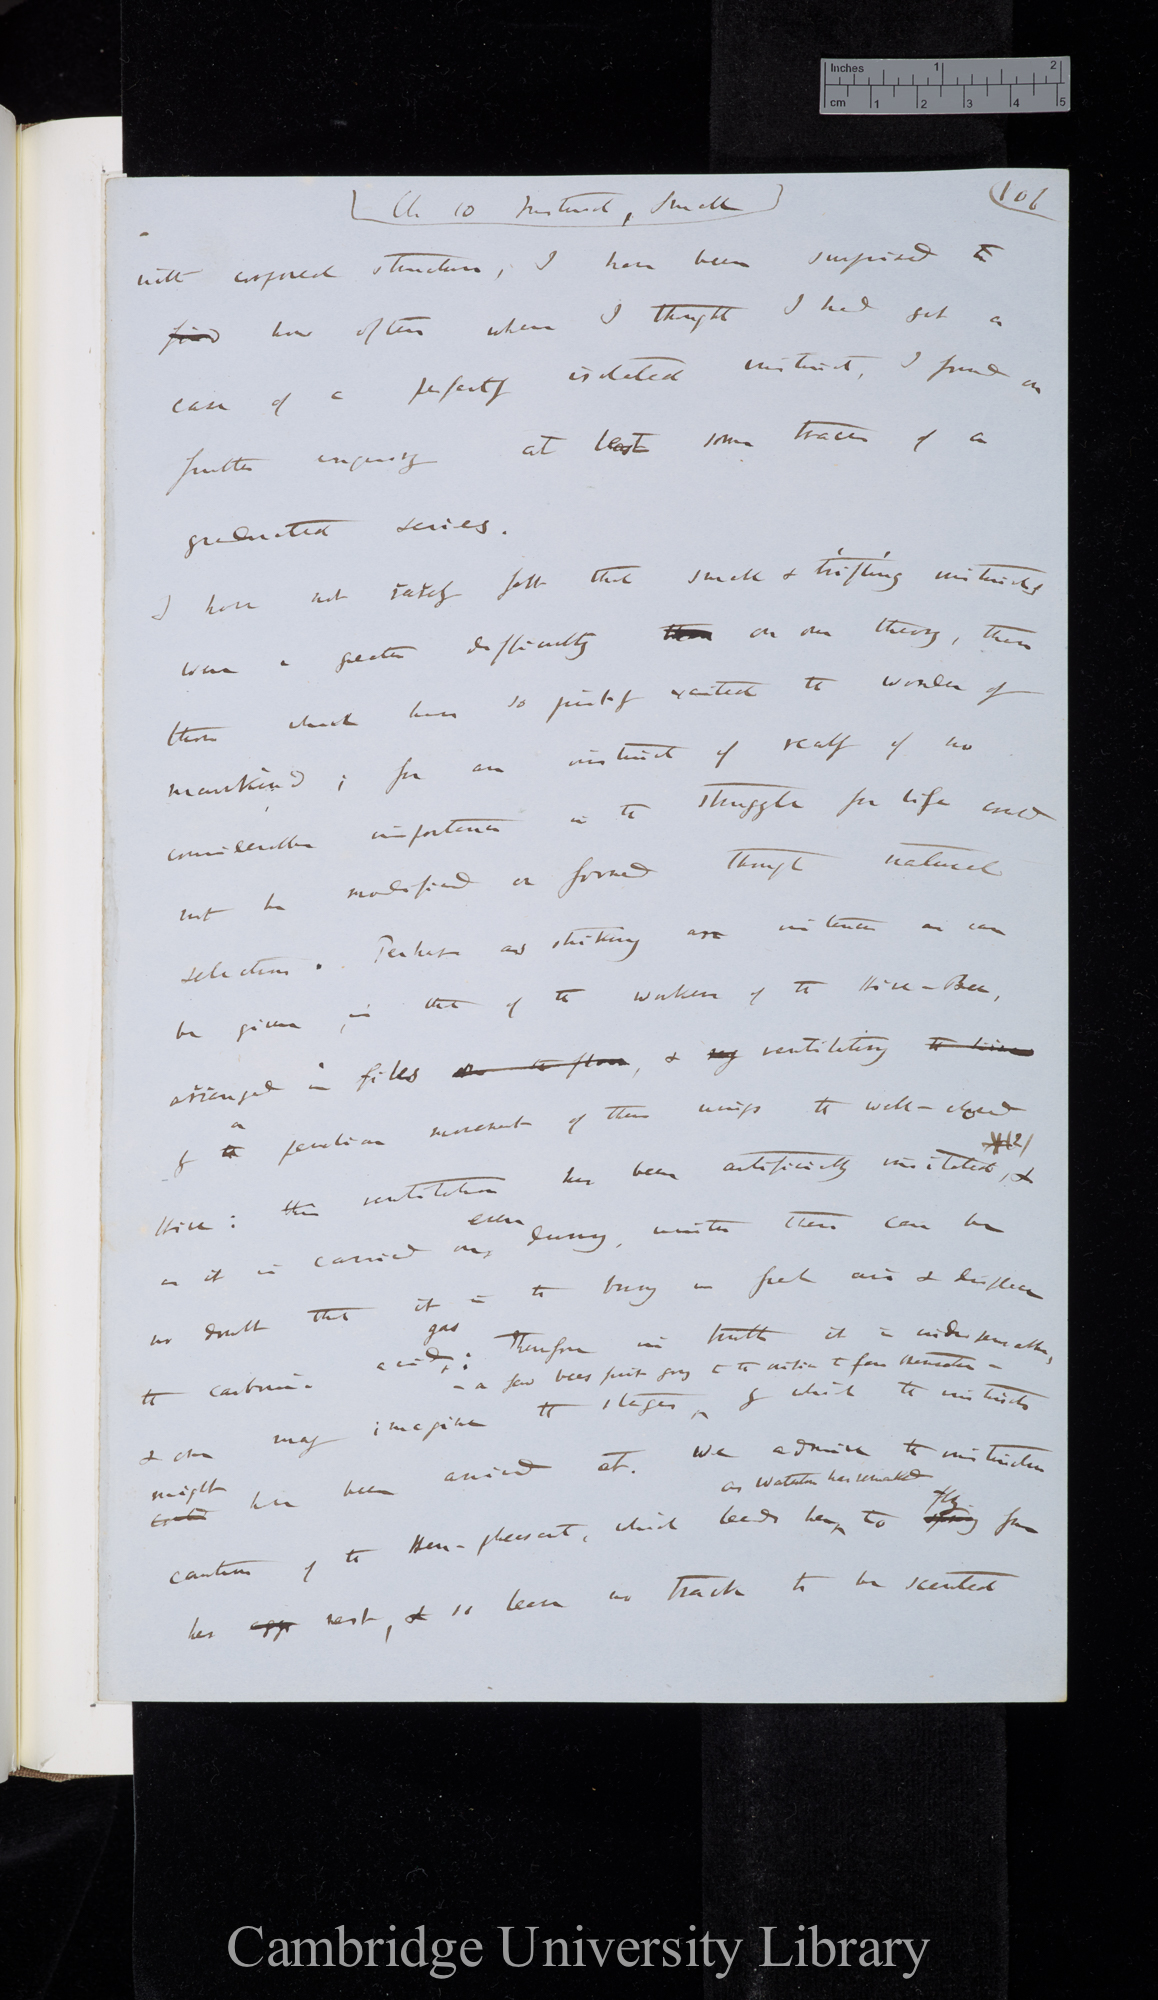 Inches 1 2
cm 1 2 3 4 5
Ch 10 Instinct, Small
106
with corporeal structures, I have been surprised to
find how often when I thought I had got a
case of a perfectly isolated instinct, I found on
further enquiry at least some traces of a
graduated series.
I have not rarely felt that small & trifling instincts
were a greater difficulty on our theory, than
those which have so justly excited the wonder of
mankind; for an instinct if really of no
considerable importance in the struggle for life could
not be modified or formed through natural
selection. Perhaps as striking an instance as can
be given, is that of the workers of the Hive-Bee,
arranged in files on the floor, & ventilating the hive
by a the peculiar movement of their wings the well-closed
(2)
Hive: this ventilation has been artificially imitated, &
as it is carried on, even during, winter there can be
no doubt that it is to bring in fresh air & displace
the carbonic acid gas; Therefore in truth it is indispensable,
& one may imagine the stages, – a few bees first going to the orifice to fan themselves – by which the instincts
might could have been arrived at. We admire the instinctive
caution of the Hen-pheasant, which leads her, as Waterton has remarked to fly spring from
her eggs nest, & so leave no track to be scented
Cambridge University Library